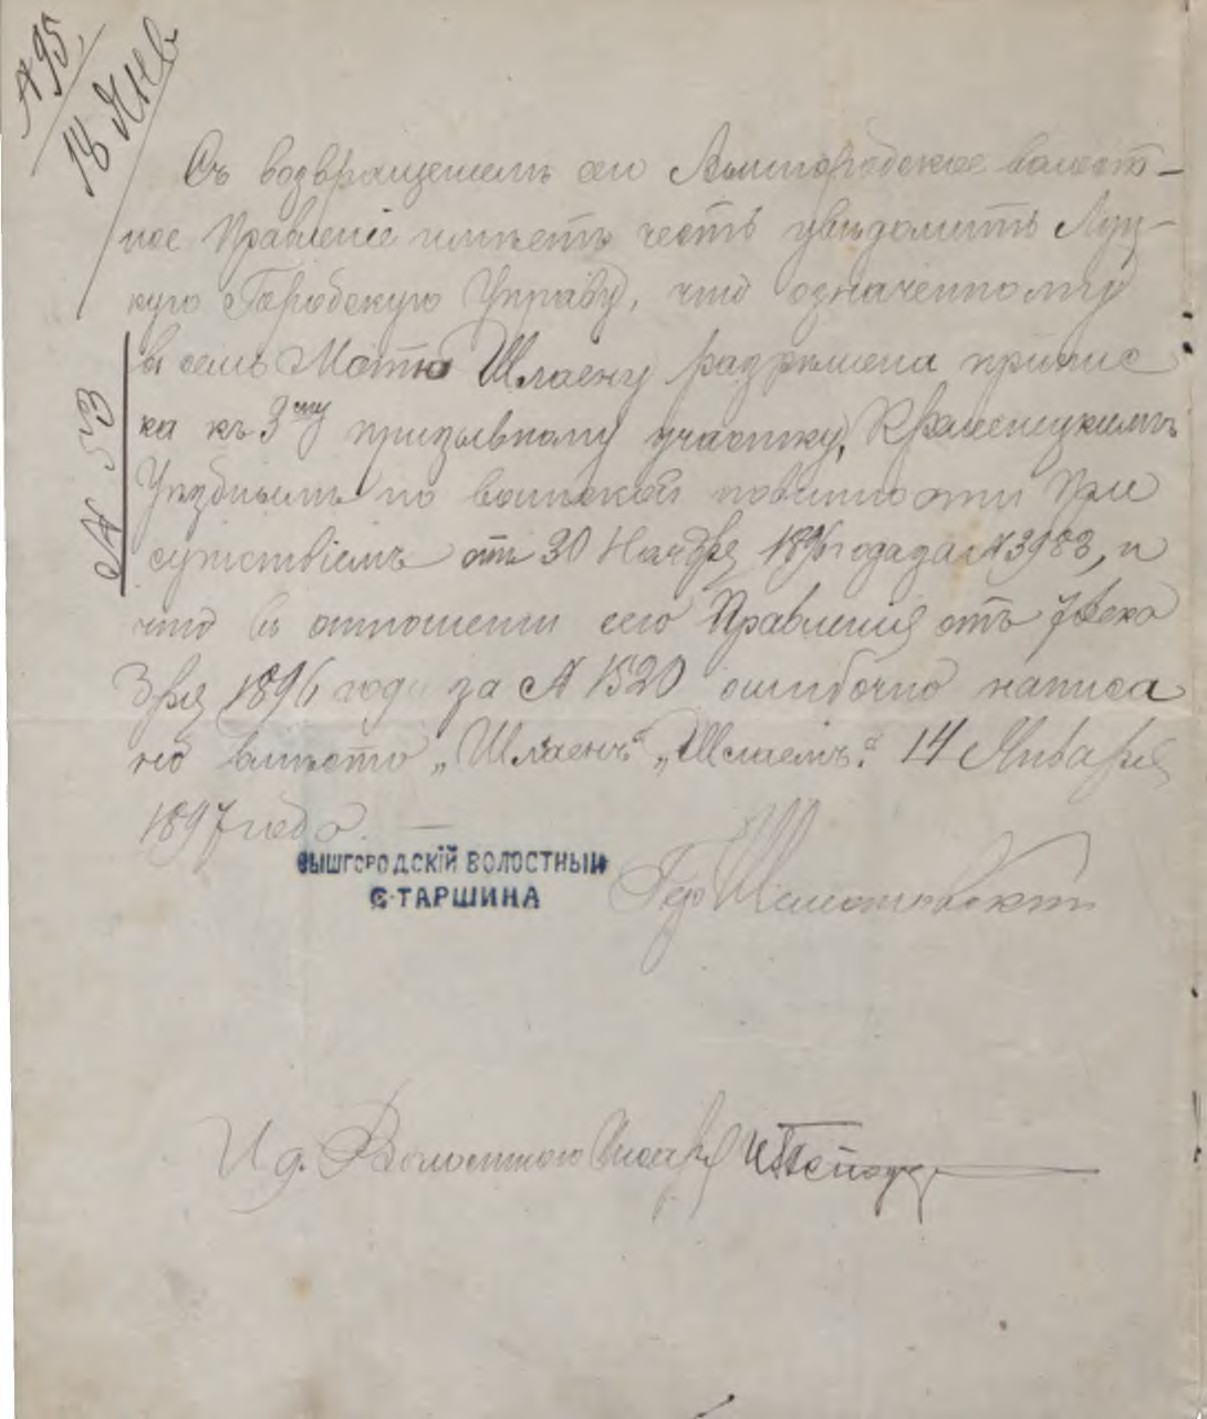 № 95.
18 Янв
Съ возвращеніемъ сего Вышгородское волост-
ное Правленіе имѣетъ честь увѣдомить Луц-
кую Городскую Управу, что означенному
въ семъ Мотю Шлаену разрѣшена припис
ка къ 3му призывному участку, Кременецкимъ
Уѣзднымъ по воинской повинности При
сутствіемъ отъ 30 Ноября 1896 года за № 3983, и
что въ отношеніи сего Правленія отъ 7 Дека
бря 1896 года за № 1520 ошибочно написа
но вмѣсто „Шлаенъ“ „Шмаемъ“. 14 Января
1897 года.
№ 53
ВЫШГОРОДСКІЙ ВОЛОСТНЫЙ
СТАРШИНА
И д. Волостного Писаря